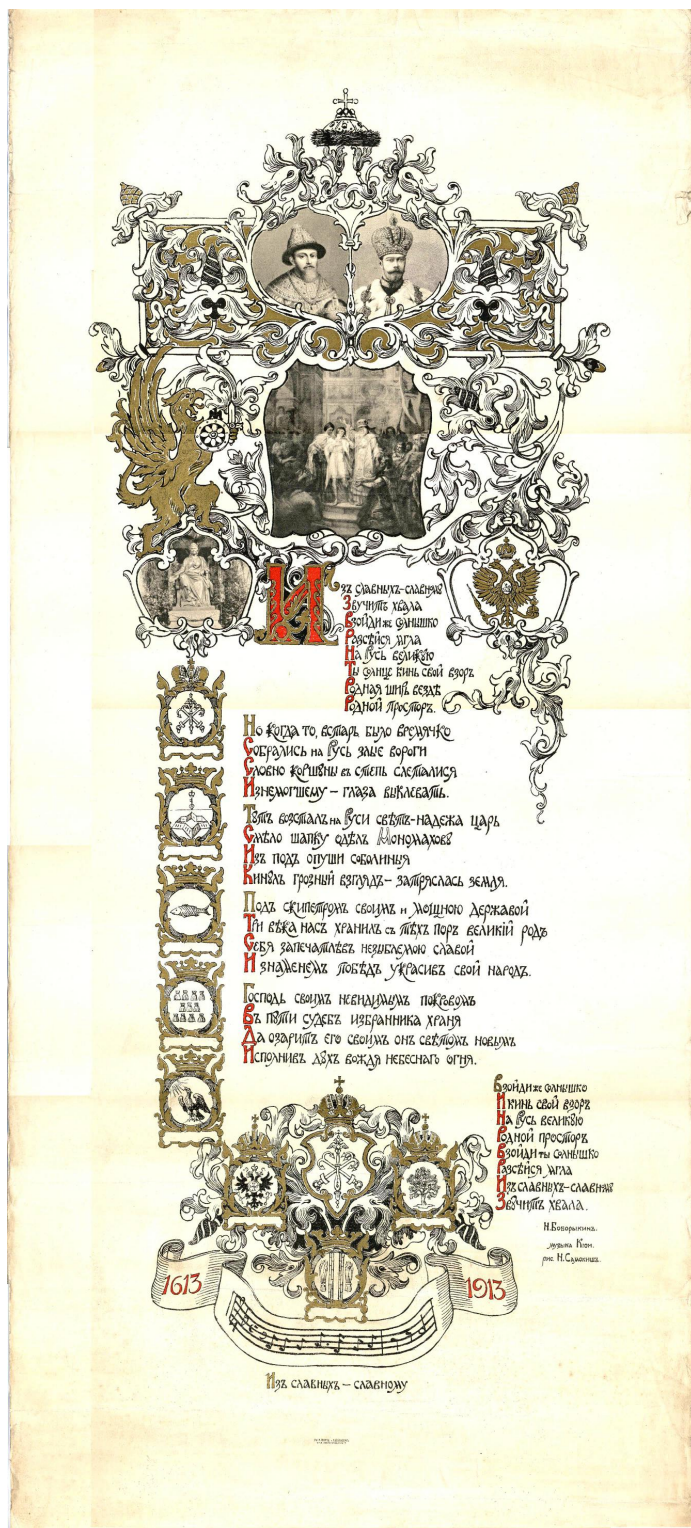 Изъ славныхъ-славному
Звучитъ хвала
Взойди же солнышко
Разсѣйся мгла
На Русь великую
Ты солнце кинь свой взоръ
Родная ширь вездѣ
Родной просторъ.
Но когда то, встарь было времячко
Собрались на Русь злые вороги
Словно коршуны въ степь слеталися
Изнемогшему – глаза выклевать.
Тутъ возсталъ на Руси свѣтъ-надежа царь
Смѣло шапку одѣлъ Мономахову
Изъ подъ опуши соболиныя
Кинулъ грозный взглядъ – затряслась земля.
Подъ скипетромъ своимъ и мощною державой
Три вѣка насъ хранилъ съ тѣхъ поръ великій родъ
Себя запечатлѣвъ незыблемою славой
И знаменемъ побѣдъ украсивъ свой народъ.
Господь своимъ невидимымъ покровомъ
Въ пути судебъ избранника храня
Да озаритъ его своимъ онъ свѣтомъ новымъ
Исполнивъ духъ вождя небеснаго огня.
Взойди же солнышко
И кинь свой взоръ
На Русь великую
Родной просторъ
Взойди ты солнышко
Разсѣйся мгла
Изъ славныхъ-славному
Звучитъ хвала.
Н. Боборыкина.
музыка Кюи.
рис. Н. Самокишъ.
1613
1913
Изъ славныхъ – славному